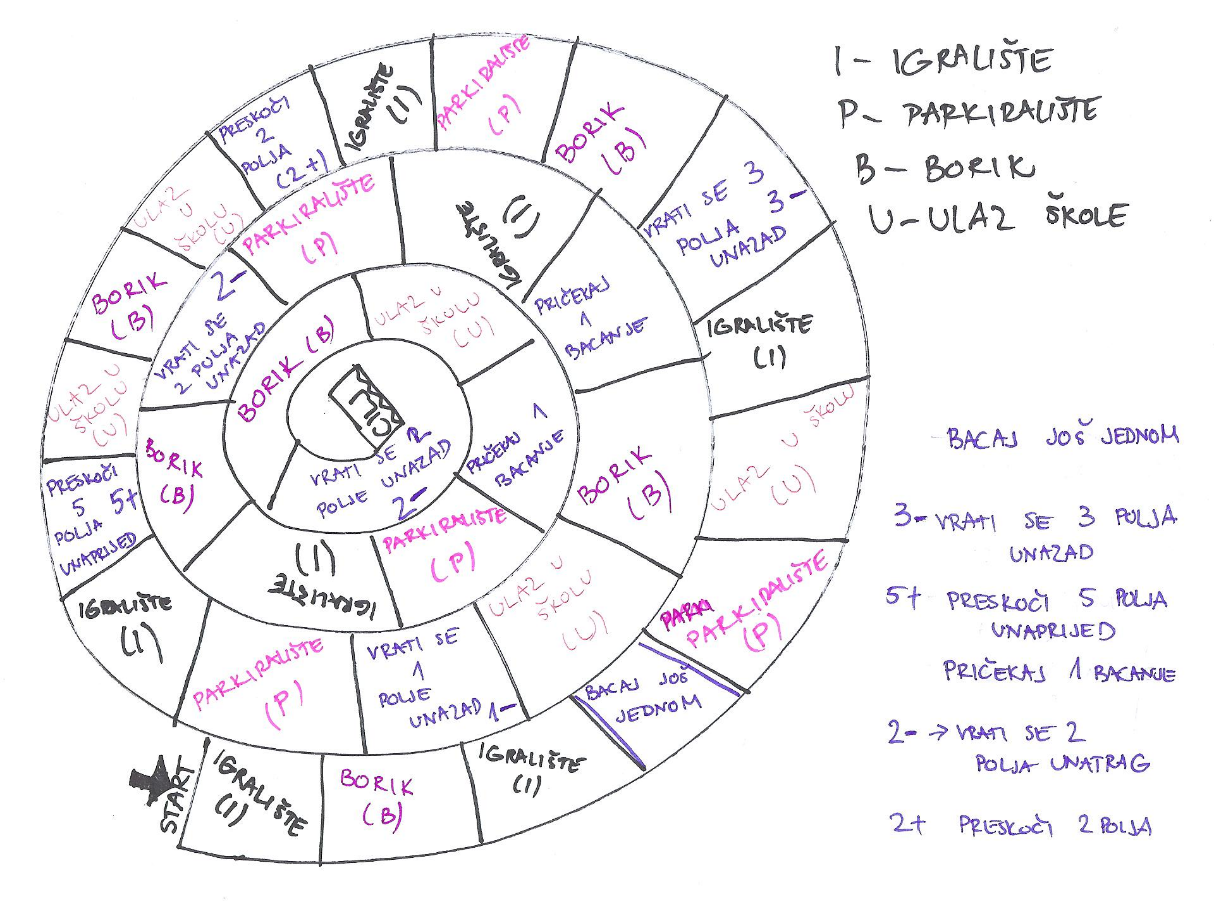 START
IGRALIŠTE
(I)
BORIK
(B)
IGRALIŠTE
(I)
BACAJ JOŠ
JEDNOM
PARKI
PARKIRALIŠTE
(P)
ULAZ U ŠKOLU
(U)
IGRALIŠTE
(I)
VRATI SE 3
POLJA 3-
UNAZAD
BORIK
(B)
PARKIRALIŠTE
(P)
IGRALIŠTE
(I)
PRESKOČI
2
POLJA
(2+)
ULAZ
U
ŠKOLU
(U)
BORIK
(B)
ULAZ U
ŠKOLU
(U)
PRESKOČI
5 5+
POLJA
UNAPRIJED
IGRALIŠTE
(I)
PARKIRALIŠTE
(P)
VRATI SE
1
POLJE
UNAZAD 1-
ULAZ U
ŠKOLU
(U)
BORIK
(B)
PRIČEKAJ
1
BACANJE
IGRALIŠTE
(I)
PARKIRALIŠTE
(P)
2-
VRATI SE
2 POLJA
UNAZAD
BORIK
(B)
IGRALIŠTE
(I)
PARKIRALIŠTE
(P)
PRIČEKAJ 1
BACANJE
ULAZ U
ŠKOLU
(U)
BORIK (B)
VRATI SE 2
POLJE UNAZAD
2-
CILJ
I - IGRALIŠTE
P - PARKIRALIŠTE
B - BORIK
U - ULAZ ŠKOLE
BACAJ JOŠ JEDNOM
3- VRATI SE 3 POLJA
UNAZAD
5+ PRESKOČI 5 POLJA
UNAPRIJED
PRIČEKAJ 1 BACANJE
2- → VRATI SE 2
POLJA UNATRAG
2+ PRESKOČI 2 POLJA